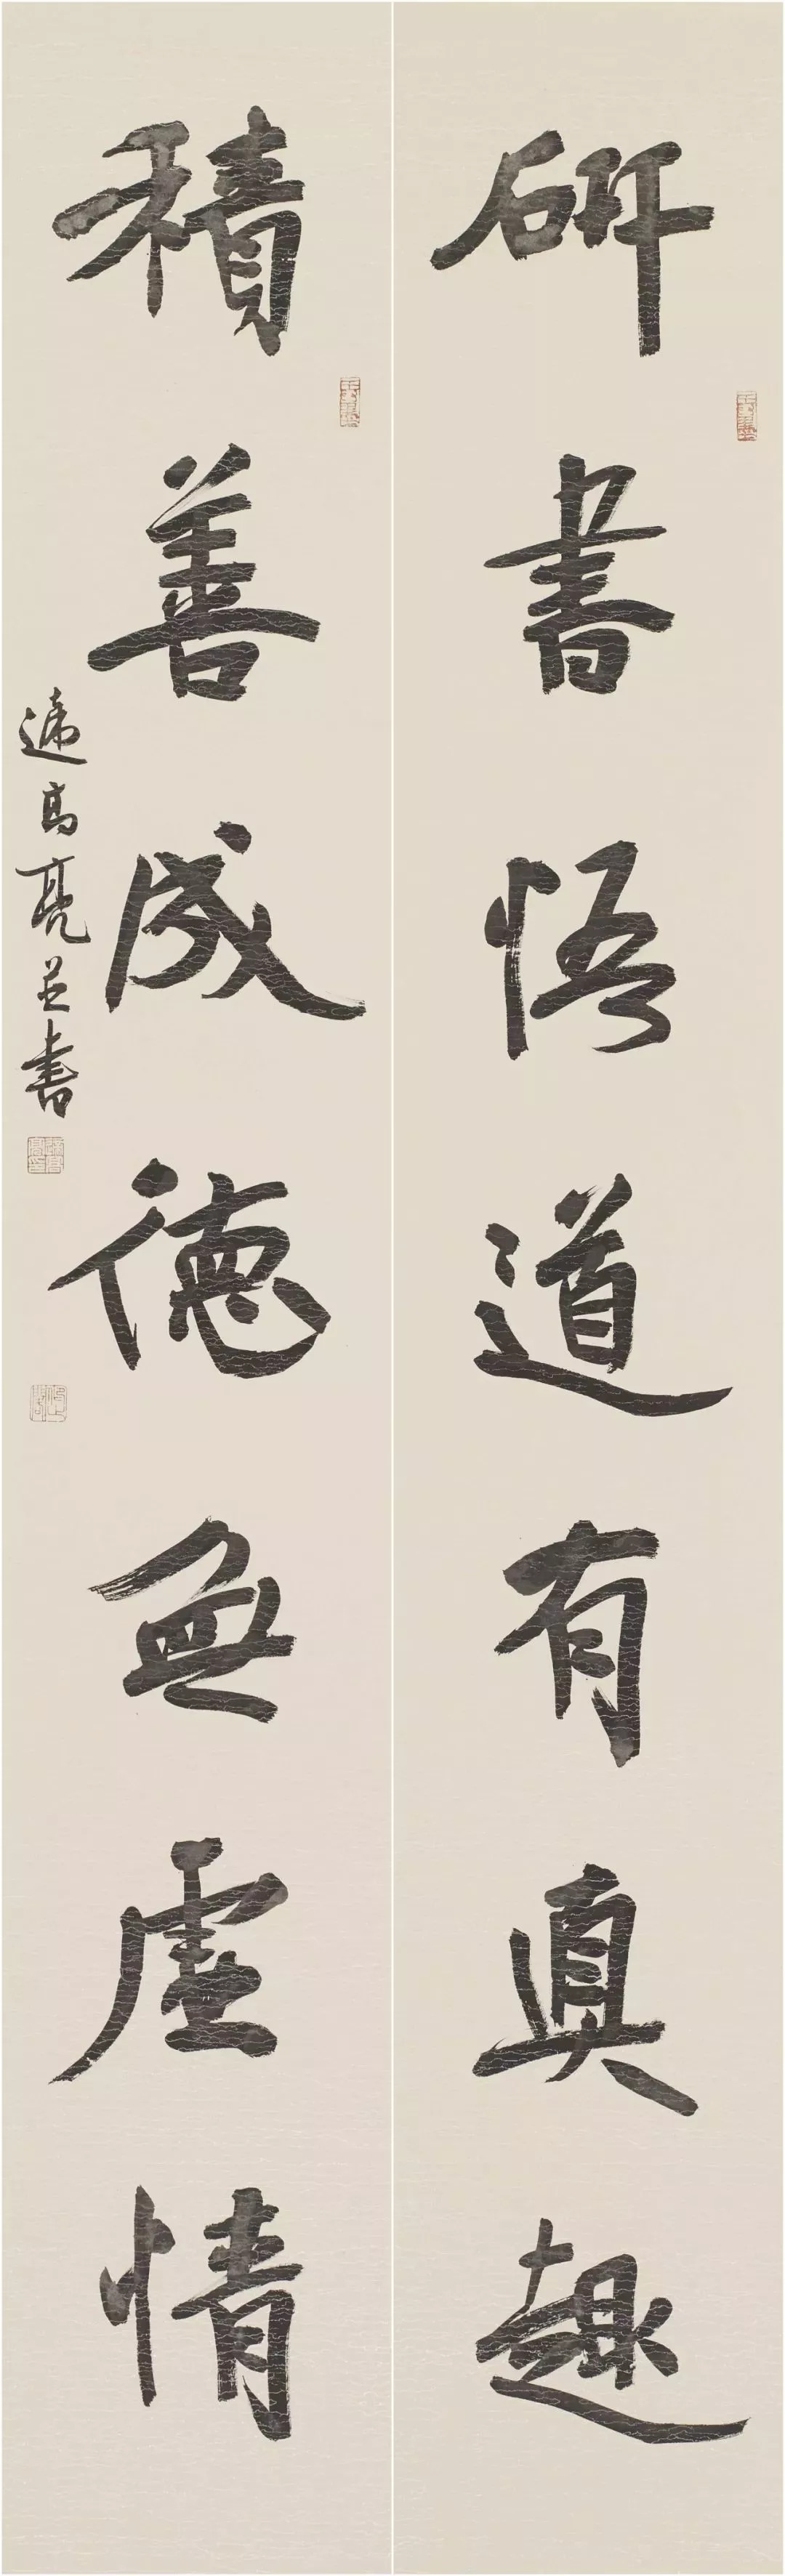 研書悟道有真趣
積善成德無虛情
適高亮並書